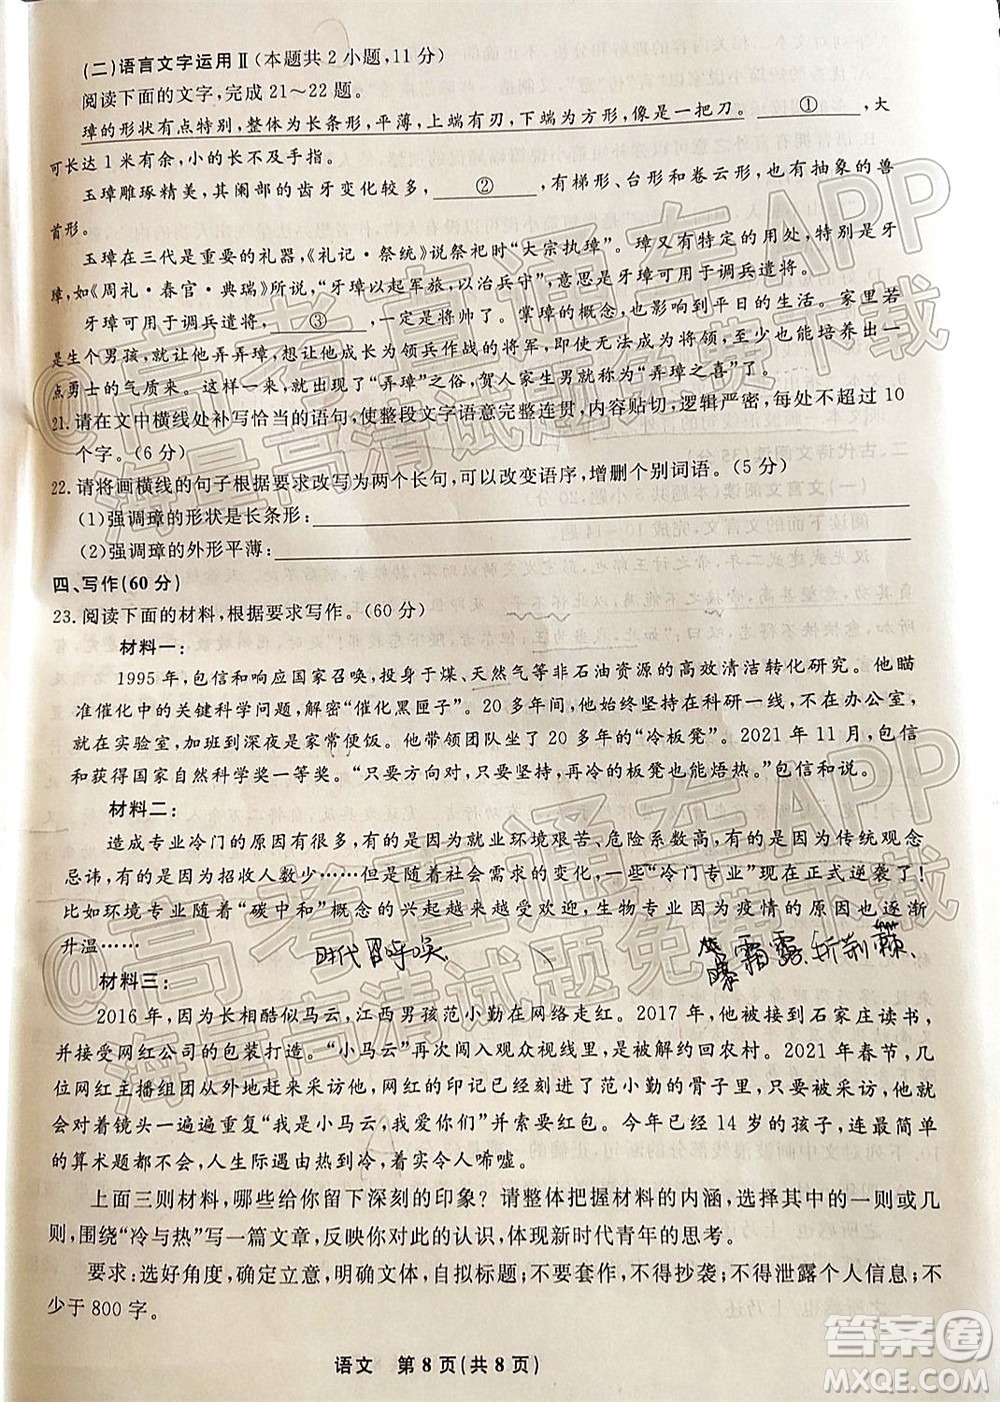 (二)语言文字运用Ⅱ(本题共2小题,11分)
阅读下面的文字,完成21～22题。
璋的形状有点特别,整体为长条形,平薄,上端有刃,下端为方形,像是一把刀。 ① ,大
可长达1米有余,小的长不及手指。
玉璋雕琢精美,其阑部的齿牙变化较多, ② ,有梯形、台形和卷云形,也有抽象的兽
首形。
玉璋在三代是重要的礼器,《礼记·祭统》说祭祀时“大宗执璋”。璋又有特定的用处,特别是牙
璋,如《周礼·春官·典瑞》所说,“牙璋以起军旅,以治兵守”,意思是牙璋可用于调兵遣将。
牙璋可用于调兵遣将, ③ ,一定是将帅了。掌璋的概念,会影响到平日的生活。家里若
是生个男孩,就让他弄弄璋,意思是让他成为一个执掌领兵作战的将军,即使无法成为将领,至少也能培养出一
点勇士的气质来。这样一来,“弄璋”之俗,贺人家生男就称为“弄璋之喜”了。
21.请在文中横线处补写恰当的语句,使整段文字语意完整连贯,内容贴切,逻辑严密,每处不超过10
个字。(6分)
22.请将画横线的句子根据要求改写为两个长句,可以改变语序,增删个别词语。(5分)
(1)强调璋的形状是长条形:
(2)强调璋的外形平薄:
四、写作(60分)
23.阅读下面的材料,根据要求写作。(60分)
材料一:
1995年,包信和响应国家召唤,投身于煤、天然气等非石油资源的高效清洁转化研究。他瞄
准催化中的关键科学问题,解密“催化黑匣子”。20多年间,他始终坚持在科研一线,不在办公室,
就在实验室,加班到深夜是家常便饭。他带领团队坐了20多年的“冷板凳”。2021年11月,包信
和获得国家自然科学奖一等奖。“只要方向对,只要坚持,再冷的板凳也能焐热。”包信和说。
材料二:
造成专业冷门的原因有很多,有的是因为就业环境艰苦、危险系数高,有的是因为传统观念
忌讳,有的是因为招收人数少……而随着社会需求的变化,一些“冷门专业”现在正式逆袭了!
比如环境专业随着“碳中和”概念的兴起越来越受欢迎,生物专业因为疫情的原因也逐渐
升温……
时代召呼唤
霜露.斩荆棘、
材料三:
2016年,因为长相酷似马云,江西男孩范小勤在网络走红。2017年,他被接到石家庄读书,
并接受网红公司的包装打造。“小马云”再次闯入观众视线里,是被解约回农村。2021年春节,几
位网红主播组团从外地赶来采访他,网红的印记已经刻进了范小勤的骨子里,只要被采访,他就
对着镜头一遍遍重复“我是小马云,我爱你们”并索要红包。今年已经14岁的孩子,连最简单
的算术题都不会,人生际遇由热转到冷,着实令人唏嘘。
上面三则材料,哪些给你留下深刻的印象?请整体把握材料的内涵,选择其中的一则或几
则,围绕“冷与热”写一篇文章,反映你对此的认识,体现新时代青年的思考。
要求:选好角度,确定立意,明确文体,自拟标题;不要套作,不得抄袭;不得泄露个人信息;不
少于800字。
语文 第8页(共8页)
答案圈
MXQE.COM
@高考直通车APP
海量高清试题免费下载
@高考直通车APP
海量高清试题免费下载